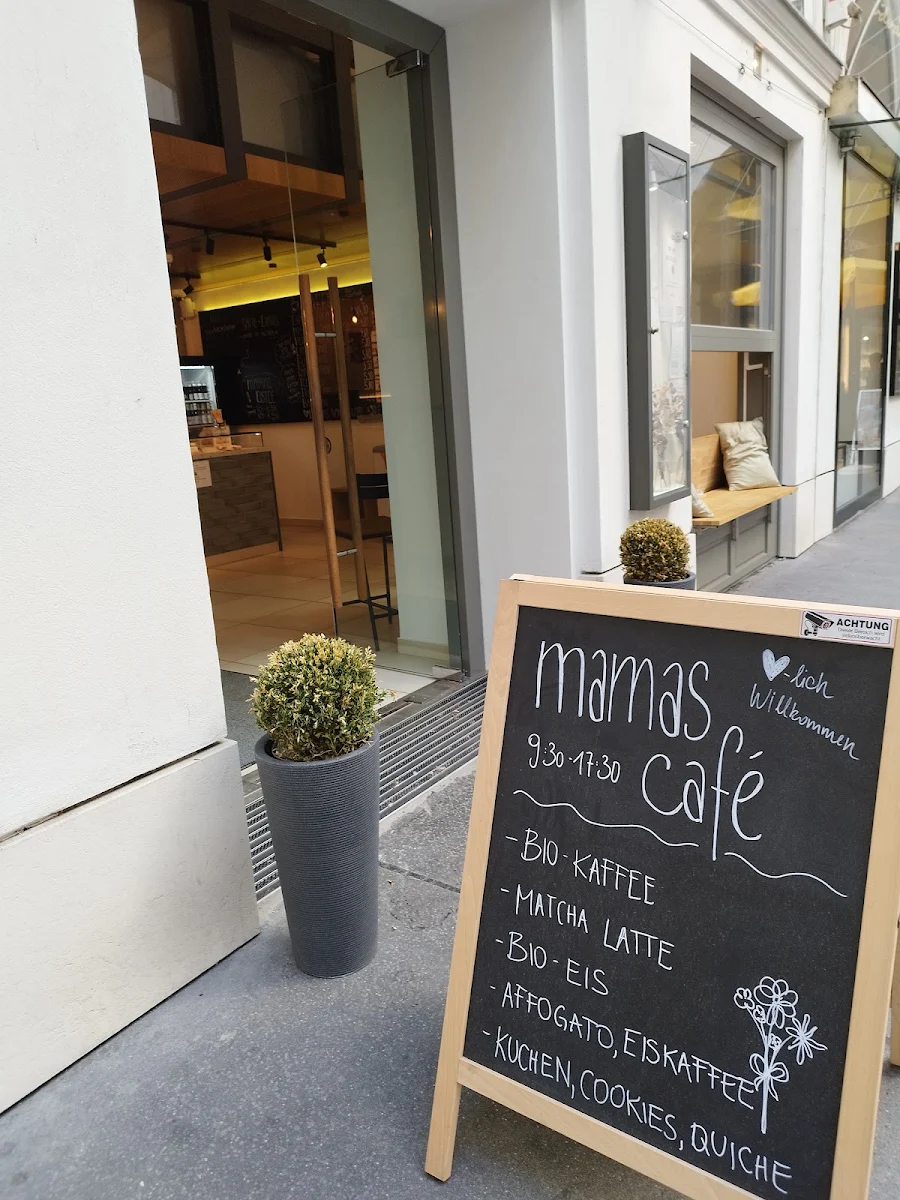 ACHTUNG
Dieser Bereich wird
videoüberwacht
mamas
café
9:30-17:30
♥-lich
Willkommen
- BIO-KAFFEE
- MATCHA LATTE
- BIO-EIS
- AFFOGATO, EISKAFFEE
- KUCHEN, COOKIES, QUICHE